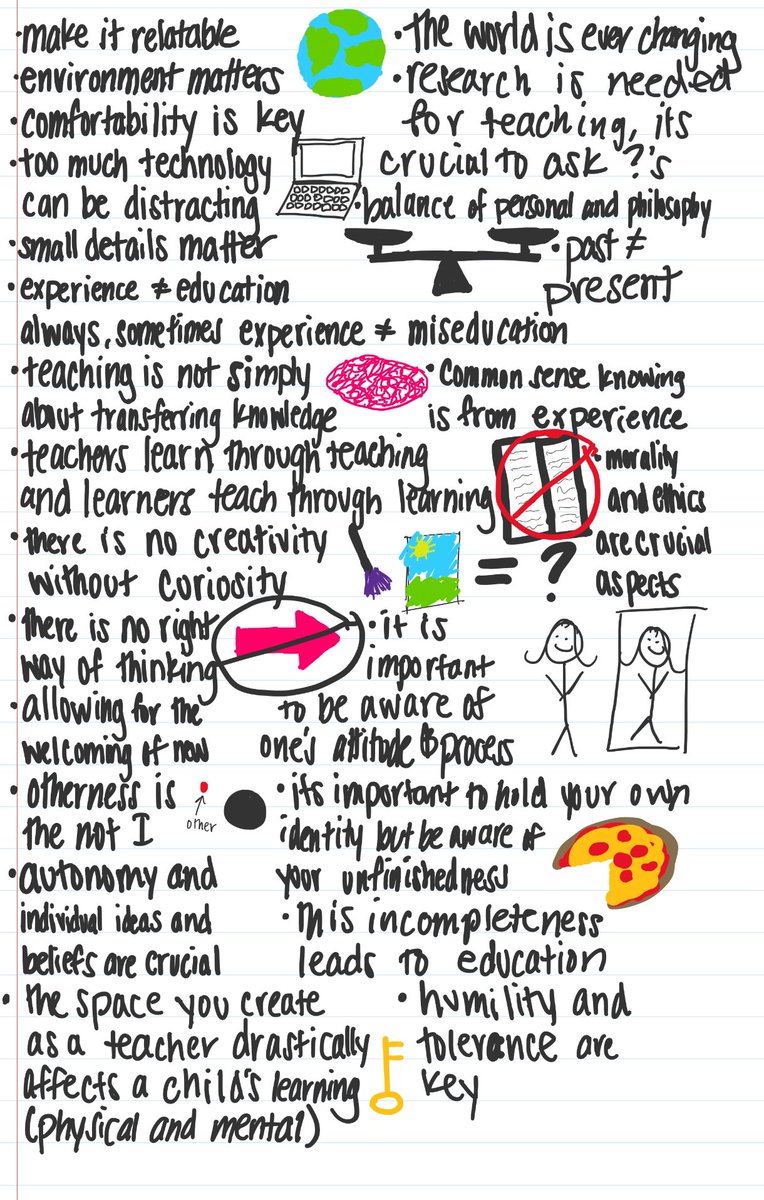 ·make it relatable
·environment matters
·comfortability is key
·too much technology
can be distracting
·small details matter
·experience ≠ education
always, sometimes experience ≠ miseducation
·teaching is not simply
about transferring knowledge
·teachers learn through teaching
and learners teach through learning
·there is no creativity
without curiosity
·there is no right
way of thinking
·allowing for the
welcoming of new
·otherness is
the not I
other
·autonomy and
individual ideas and
beliefs are crucial
·the space you create
as a teacher drastically
affects a child's learning
(physical and mental)
·The world is ever changing
·research is needed
for teaching, its
crucial to ask ?'s
·balance of personal and philosophy
·past ≠
present
·Common sense knowing
is from experience
·morality
and ethics
are crucial
aspects
= ?
·it is
important
to be aware of
one's attitude & process
·its important to hold your own
identity but be aware of
your unfinishedness
·This incompleteness
leads to education
·humility and
tolerance are
key